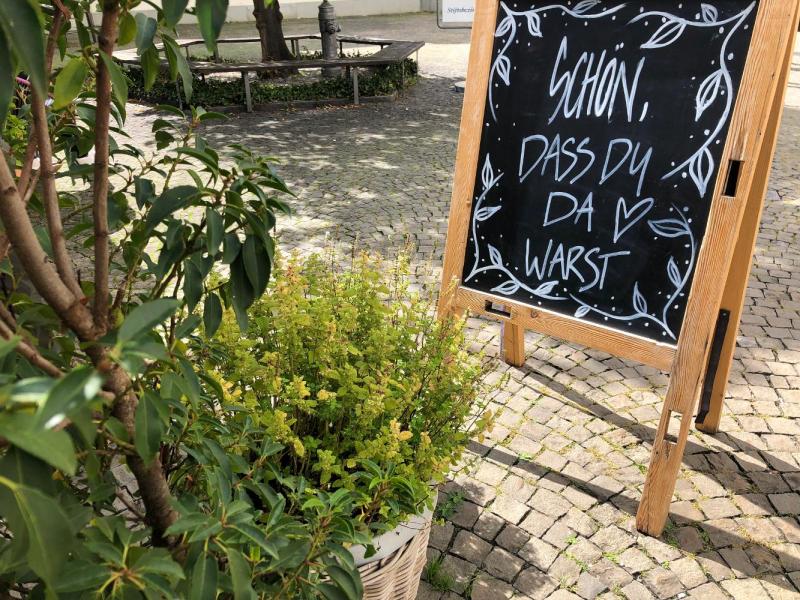 Stiftsbezir
SCHÖN,
DASS DU
DA ♡
WARST